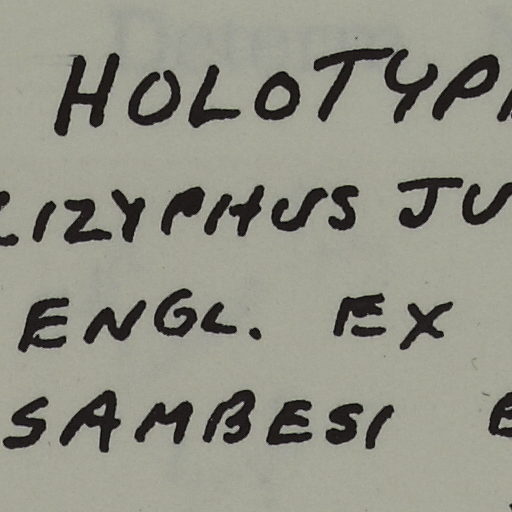 HOLOTYP
IZYPHUS JU
ENGL. EX
SAMBESI